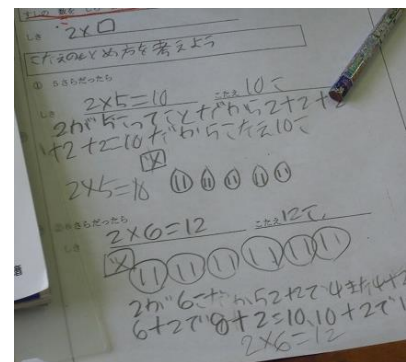 しき 2×□
こたえのもとめ方を考えよう
① 5さらだったら
しき 2×5=10 こたえ 10こ
2が5こってことだから2+2+2
+2+2=10だからこたえ10こ
図
2×5=10
②6さらだったら
しき 2×6=12 こたえ 12こ
図
2が6こだから2+2で4また4+2
6+2で8+2=10、10+2で1
2×6=12